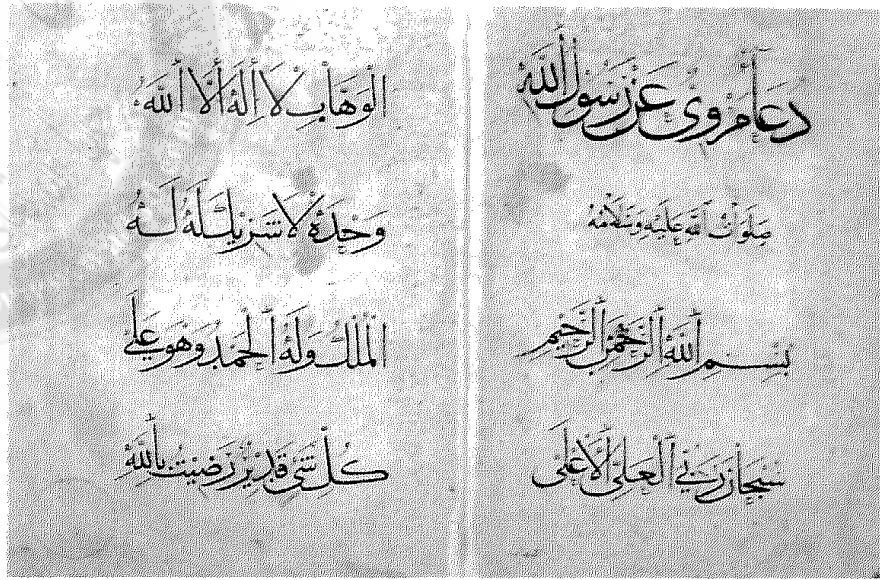 دعاء مروى عن رسول الله
صلوات الله عليه وسلامه
بسم الله الرحمن الرحيم
سبحان ربي العلي الاعلى
الوهاب لا اله الا الله
وحده لا شريك له له
الملك وله الحمد وهو على
كل شئ قدير رضيت بالله